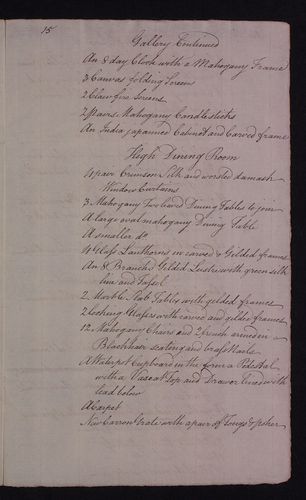 15
Gallery Continued
An 8 day Clock with a Mahogany Frame
3 Canvas folding Screens
2 Claw fire Screens
2 pairs Mahogany Candlesticks
An India japanned Cabinet and Carved frame
High Dining Room
4 pair Crimson Silk and worsted damask
Window Curtains
3 Mahogany Two leav'd Dining Tables to join
A large oval mahogany Dining Table
A smaller do
4 Glass Lanthorns in carved & Gilded frames
An 8 Branch'd Gilded Lustre with green silk
line and Tassel
2 Marble Slab Tables with gilded frames
2 looking Glasses with carved and gilded frames
12 Mahogany Chairs and 2 french armed in a
Black hair seating and brass Nails
A Waterpot Cupboard in the form a Pedestal
with a Vase at Top and Drawer lined with
lead below
A Carpet
New Carron Grate with a pair of Tongs & poker